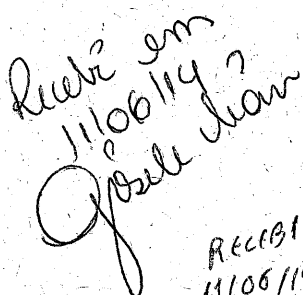 Recebi em
11/06/14
Gisele
RECEBI
11/06/1